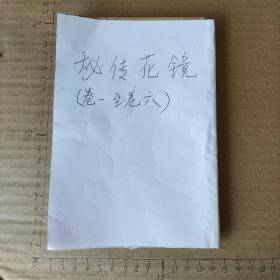 秘传花镜
(卷一至卷六)